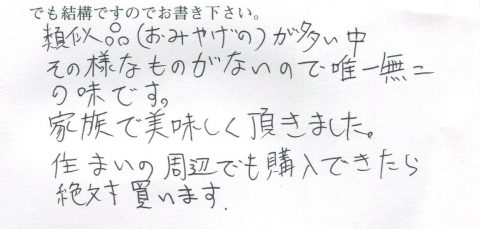 でも結構ですのでお書き下さい。
類似品(おみやげの)が多い中
その様なものがないので唯一無二
の味です。
家族で美味しく頂きました。
住まいの周辺でも購入できたら
絶対買います.